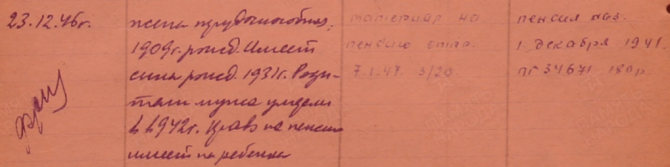 23.12.46г.
жена трудоспособна,
1909г. рожд. Имеет
сына рожд. 1931г. Роди-
тели мужа умерли
в 1942г. Право на пенсию
имеет на ребенка
материал на
пенсию отпр.
7.1.47. 3/20
пенсия наз.
1 декабря 194
№ 34671 180р.